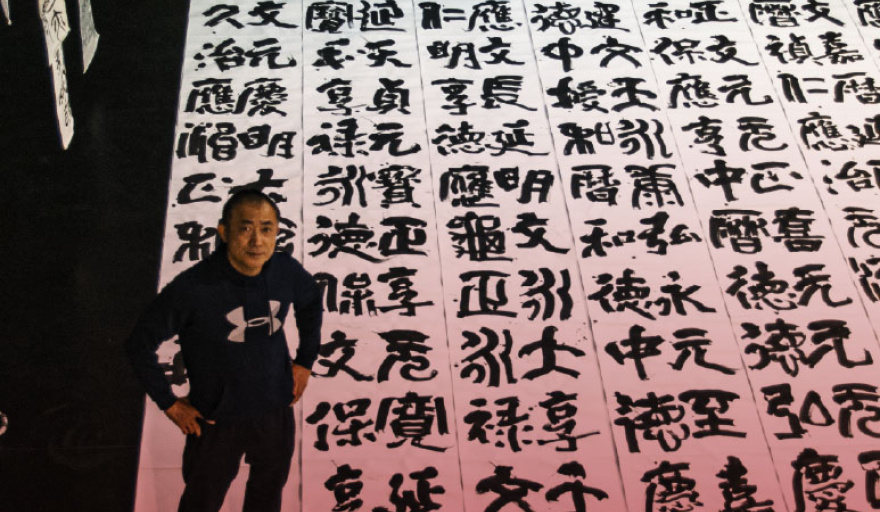 文曆
嘉禎
曆仁
延應
正和
文保
元應
元享
正中
嘉曆
元德
元弘
建德
文中
天授
永和
康曆
弘和
永德
元中
至德
嘉慶
應仁
文明
長享
延德
明應
文龜
永正
大永
享祿
天文
延寶
天和
貞享
元祿
寶永
正德
享保
元文
寬保
延享
文久
元治
慶應
明治
大正